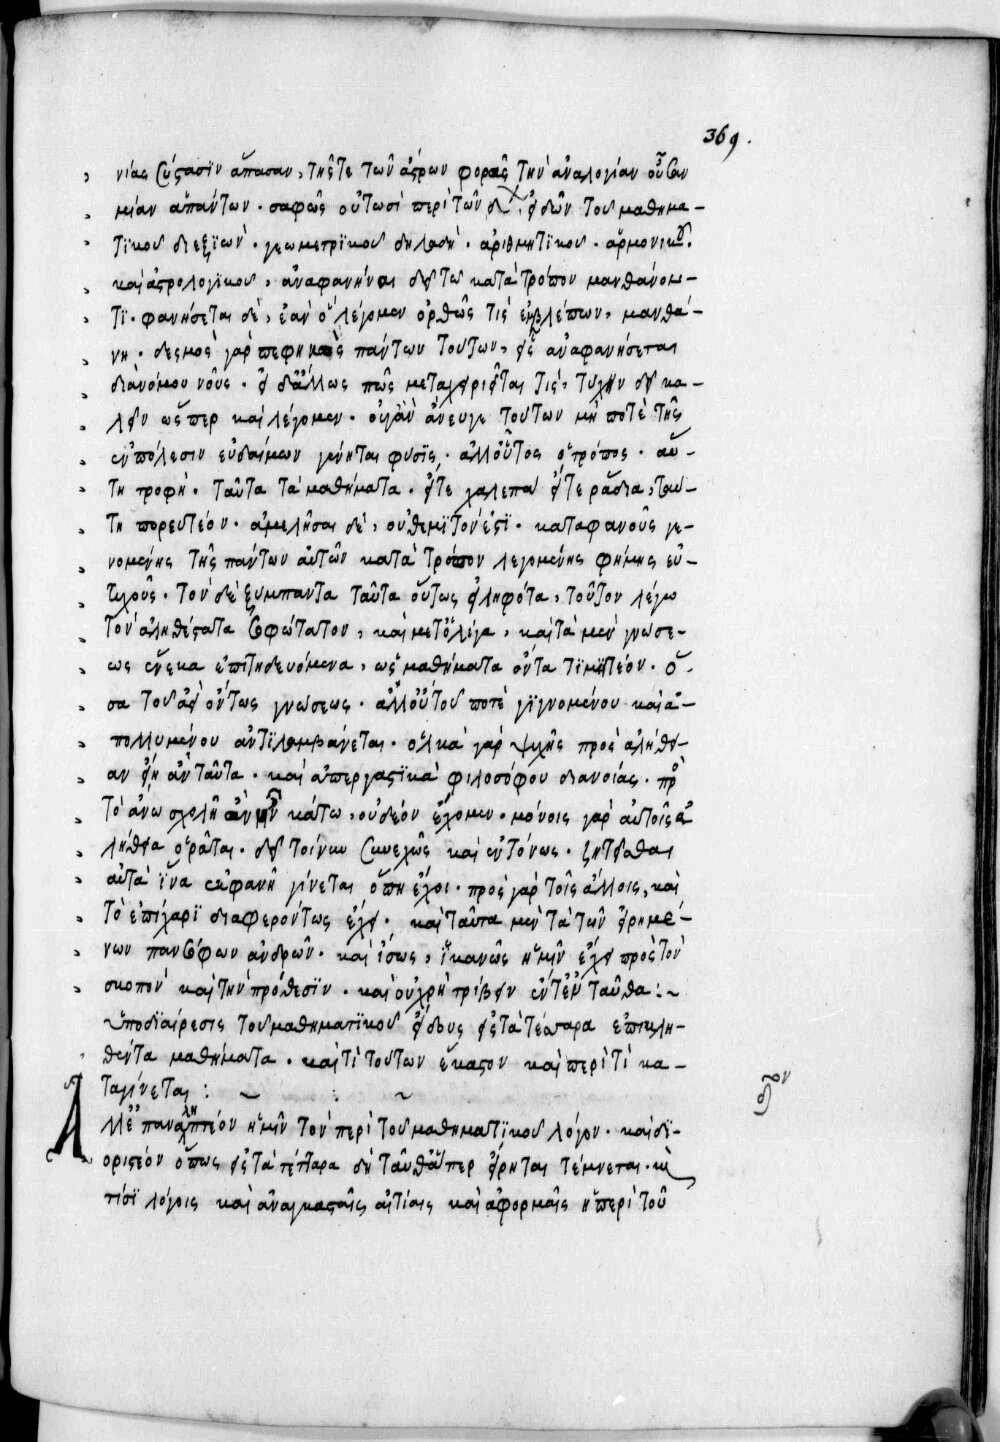 369.
νίας σύστασιν ἅπασαν, τῆς τε τῶν ἄστρων φορᾶς τὴν ἀναλογίαν οὖσαν
μίαν ἁπάντων. σαφῶς οὑτωσὶ περὶ τῶν δ΄ εἰδῶν τοῦ μαθημα-
τικοῦ διεξιών. γεωμετρϊκοῦ δηλαδή. ἀριθμητικοῦ. ἁρμονικοῦ.
καὶ ἀστρολογϊκοῦ, ἀναφανῆναι δεῖ τῶ κατὰ τρόπον μανθάνον-
τϊ. φανήσεται δὲ, ἐὰν ὃ λέγομεν ὀρθῶς τὶς ἐμβλέπων, μανθά-
νη. δεσμὸς γὰρ πεφηνὼς πάντων τούτων, εἷς ἀναφανήσεται
διανόμου νοῦς. εἰ δ' ἄλλως πῶς μεταχειριεῖται τις, τύχην δεῖ κα-
λεῖν ὥσπερ καὶ λέγομεν. οὐγὰρ ἄνευγε τούτων μὴ ποτὲ τῆς
ἐν πόλεσιν εὐδαίμων γένηται φύσϊς. ἀλλ' οὗτος ὁ τρόπος. αὕ-
τη τροφή. ταῦτα τὰ μαθήματα. εἴτε χαλεπὰ εἴτε ῥάδια, ταύ-
τη πορευτέον. ἀμελῆσαι δὲ, οὐ θεμϊτόν ἐστϊ. καταφανοῦς γε-
νομένης τῆς πάντων αὐτῶν κατὰ τρόπον λεγομένης φήμης εὐ-
τυχοῦς. τὸν δὲ ξύμπαντα ταῦτα οὕτως εἰληφότα, τοῦτον λέγω
τὸν ἀληθέστατα σοφώτατον, καὶ μετ' ὀλίγα, καὶ τὰ μὲν γνώσε-
ως ἕνεκα ἐπιτηδευόμενα, ὡς μαθήματα ὄντα τϊμητέον. ὅ-
σα τοῦ ἀεὶ ὄντως γνώσεως. ἀλλ' οὐ τοῦ ποτὲ γϊγνομένου καὶ ἀ-
πολλυμένου ἀντϊλαμβάνεται. ὁλκὰ γὰρ ψυχῆς πρὸς ἀλήθει-
αν εἴη ἂν ταῦτα. καὶ ἀπεργαστϊκὰ φιλοσόφου διανοίας. πρὸς
τὸ ἄνω σχεῖν ἃ νῦν κάτω, οὐ δέον ἔχομεν. μόνοις γὰρ αὐτοῖς ἀ
λήθεια ὁρᾶται. δεῖ τοίνυν συνεχῶς καὶ ἐντόνως. ζητεῖσθαι
αὐτὰ ἵνα ἐκφανῆ γίνεται ὅπη ἔχοι. πρὸς γὰρ τοῖς ἄλλοις, καὶ
τὸ ἐπίχαρϊ διαφερόντως ἔχει. καὶ ταῦτα μὲν τὰ τῶν εἰρημέ-
νων πανσόφων ἀνδρῶν. καὶ ἴσως, ἱκανῶς ἡμῖν ἔχει πρὸς τὸν
σκοπὸν καὶ τὴν πρόθεσϊν. καὶ οὐ χρὴ τρίβειν ἔντε ἐνταῦθα :~
ὑποδϊαίρεσις τοῦ μαθηματϊκοῦ εἴδους εἰς τὰ τέσσαρα ἐπικλη-
θέντα μαθήματα. καὶ τί τούτων ἕκαστον καὶ περὶ τί κα-
ταγίνεται : ~ : ~
Ἀλλὰ ἐπαναληπτέον ἡμῖν τὸν περὶ τοῦ μαθηματϊκοῦ λόγον. καὶ δι-
οριστέον ὅπως εἰς τὰ τέτταρα δὴ ταῦθ' ἅπερ εἴρηται τέμνεται. καὶ
τίσϊ λόγοις καὶ ἀναγκασταῖς αἰτίαις καὶ ἀφορμαῖς ἡ περὶ τοῦ